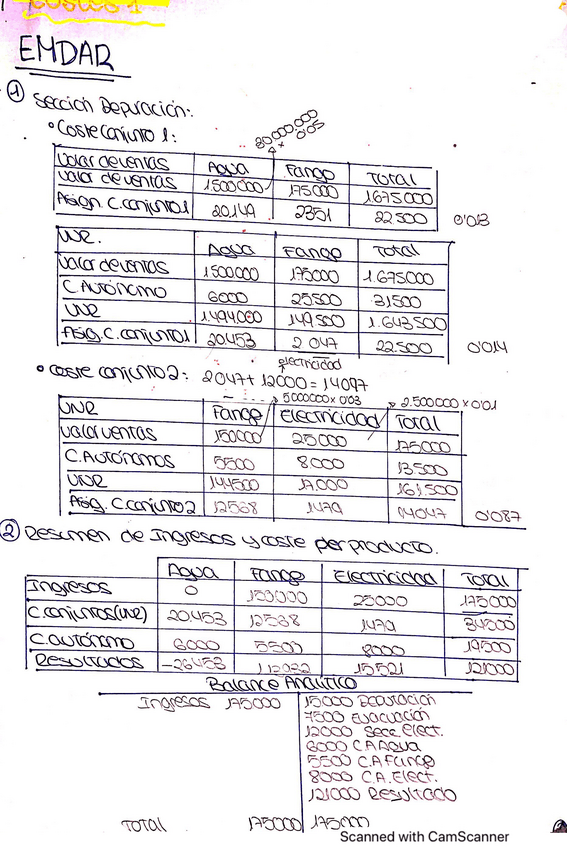 COSTES 1
EMDAR
① Sección Depuración:
• Coste Conjunto 1:
80000000
x 0'05
Valor de ventas Agua Fango Total
Valor de ventas 1.500.000 175000 1.675.000
Asign. C. conjunto 1 20.149 2351 22.500 0'013
VNR. Agua Fango Total
Valor de ventas 1.500.000 175000 1.675.000
C. Autónomo 6000 25500 31.500
VNR 1.494.000 149.500 1.643.500
Asig. C. conjunto 1 20453 2047 22.500 0'014
electricidad
• Coste conjunto 2: 2047 + 12000 = 14047
5000000 x 0'03 2.500000 x 0'01
VNR Fango Electricidad Total
Valor ventas 150000 25000 175000
C. Autónomos 5500 8000 13500
VNR 144500 17.000 161.500
Asig. C. conjunto 2 12568 1479 14047 0'087
② Resumen de Ingresos y coste por producto.
Agua Fango Electricidad Total
Ingresos 0 150000 25000 175000
C. conjuntos (VNR) 20.453 12568 1479 34500
C. autónomo 6000 5500 8000 19500
Resultados -26453 15521 121000
Balance Analítico
Ingresos 175000 15000 Depuración
7500 Evacuación
12000 Secc. Elect.
6000 C.A Agua
5500 C.A Fango
8000 C.A. Elect.
121000 Resultado
TOTAL 175000 175000
Scanned with CamScanner